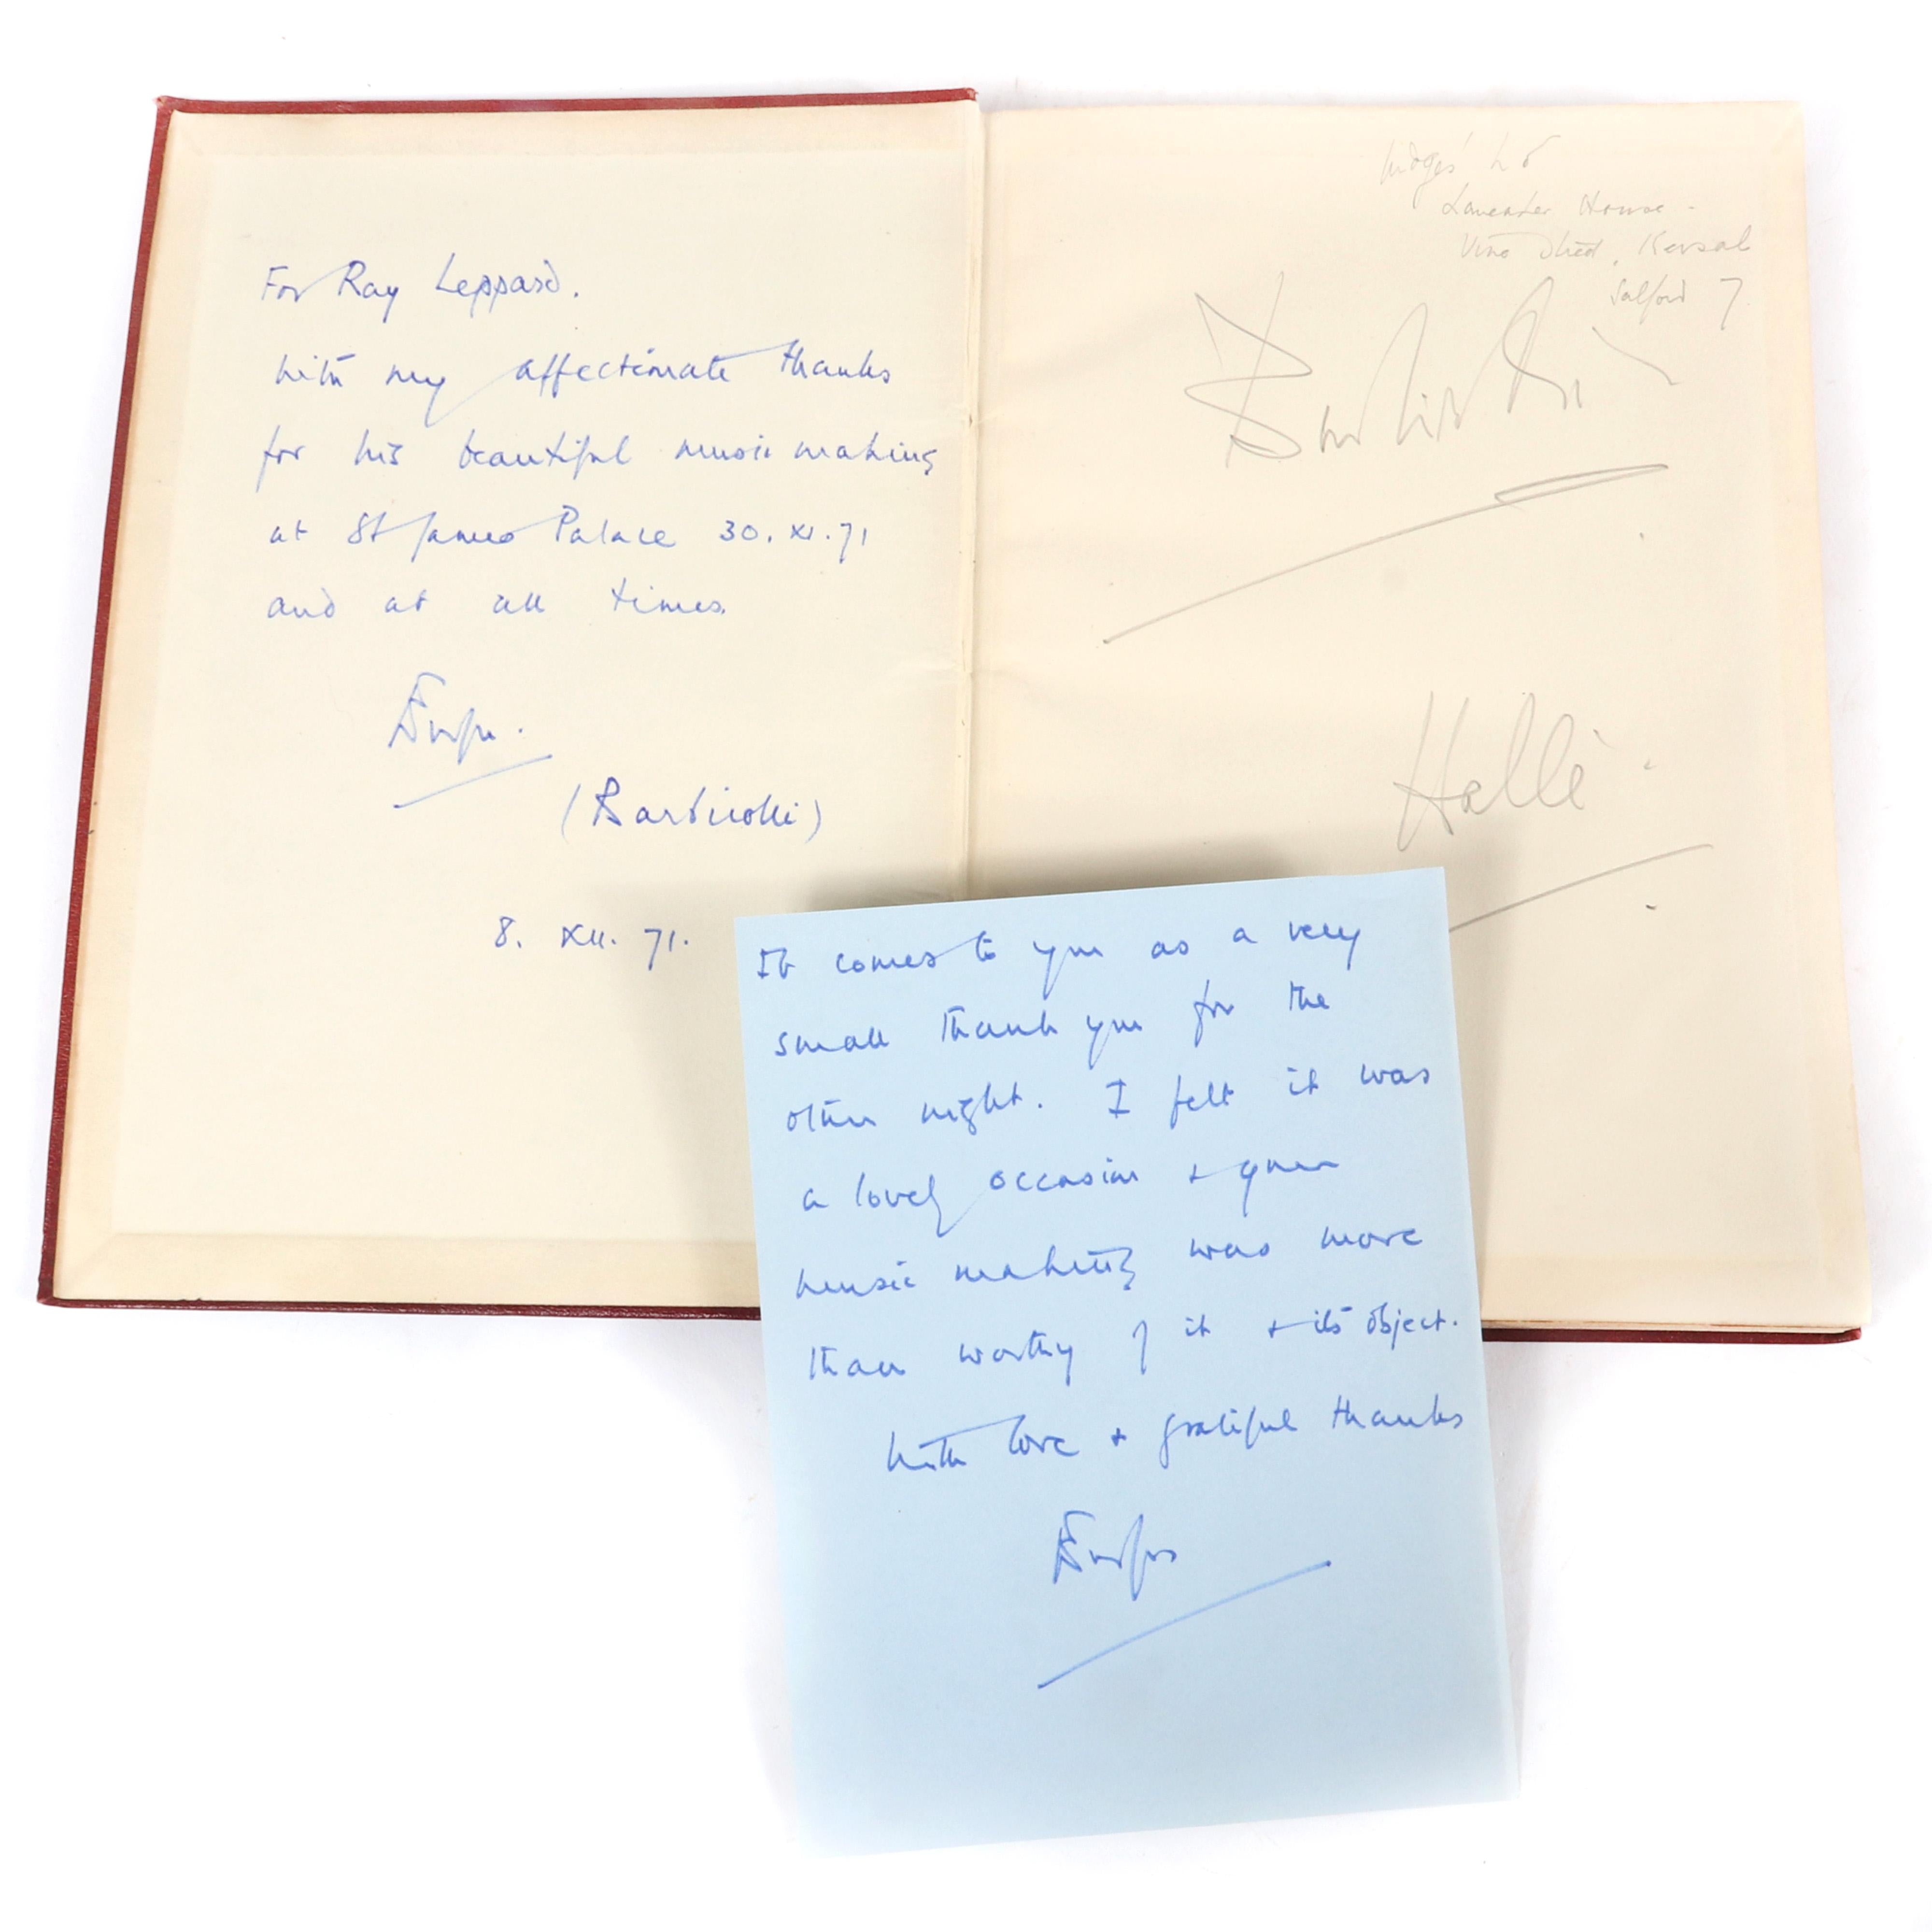 For Ray Leppard.
with my affectionate thanks
for his beautiful music making
at St James Palace 30. XI. 71
and at all times.
(Barbirolli)
8. XII. 71.
Judges'
Lancaster House -
Vine Street, Kersal
Salford 7
Barbirolli
Hallé
It comes to you as a very
small thank you for the
other night. I felt it was
a lovely occasion + your
music making was more
than worthy of it + its object.
With love + grateful thanks